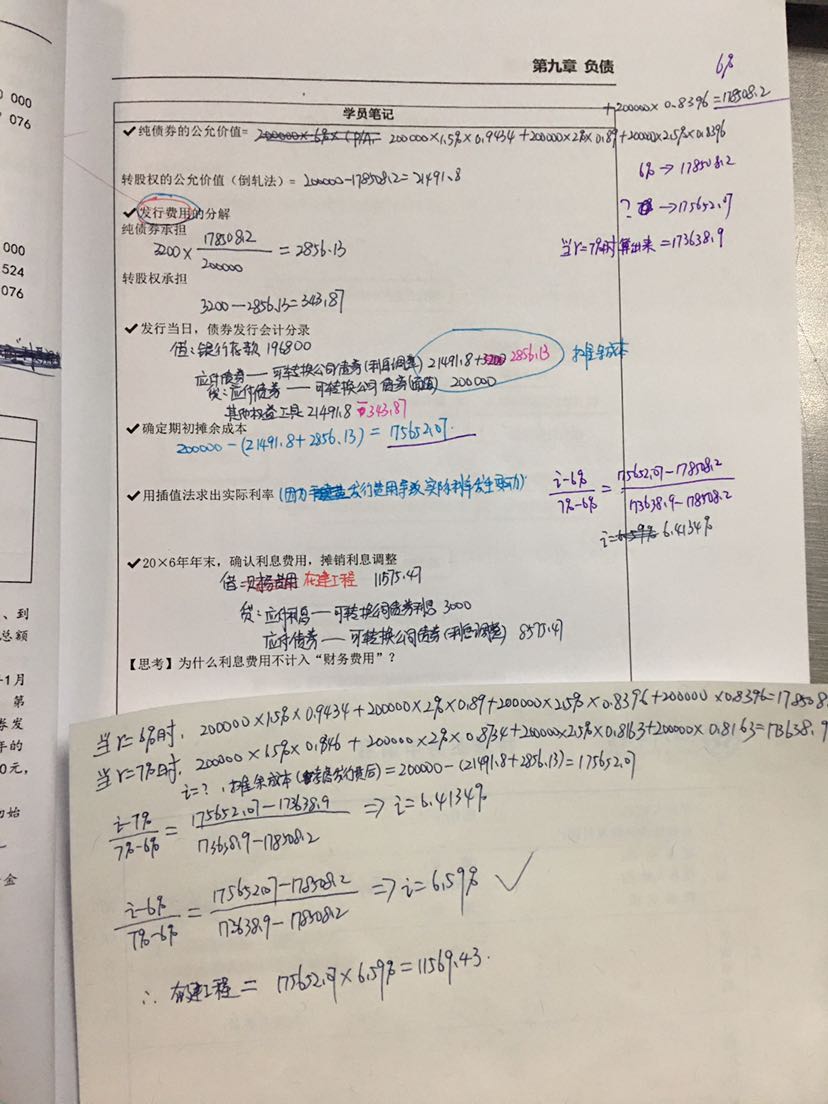 000
076
000
524
076
、到
总额
-1月
第
券发
年的
0元，
初始
金
第九章 负债
6%
学员笔记
+200000×0.8396=178508.2
✔纯债券的公允价值= 200000×6%×(P/A, 200000×1.5%×0.9434+200000×2%×0.89+200000×2.5%×0.8396
转股权的公允价值（倒轧法）= 200000-178508.2=21491.8
6%→178508.2
?→175652.07
当r=7%时算出来=173638.9
✔发行费用的分解
纯债券承担
3200×178508.2/200000=2856.13
转股权承担
3200-2856.13=343.87
✔发行当日，债券发行会计分录
借：银行存款 196800
应付债券——可转换公司债券(利息调整) 21491.8+3200 2856.13 摊余成本
贷：应付债券——可转换公司债券(面值) 200000
其他权益工具 21491.8-343.87
✔确定期初摊余成本
200000-(21491.8+2856.13)=175652.07.
✔用插值法求出实际利率(因为发行费用导致实际利率发生变动)
i-6%/7%-6%=175652.07-178508.2/173638.9-178508.2
i=6.59% 6.4134%
✔20×6年年末，确认利息费用，摊销利息调整
借：财务费用 在建工程 11575.47
贷：应付利息——可转换公司债券利息 3000
应付债券——可转换公司债券(利息调整) 8575.47
【思考】为什么利息费用不计入“财务费用”？
当r=6%时，200000×1.5%×0.9434+200000×2%×0.89+200000×2.5%×0.8396+200000×0.8396=178508.
当r=7%时，200000×1.5%×0.9346+200000×2%×0.8734+200000×2.5%×0.8163+200000×0.8163=173638.9
i=?，摊余成本(考虑发行费后)=200000-(21491.8+2856.13)=175652.07
i-7%/7%-6%=175652.07-173638.9/173638.9-178508.2⇒i=6.4134%
i-6%/7%-6%=175652.07-178508.2/173638.9-178508.2⇒i=6.59% ✓
∴在建工程=175652.07×6.59%=11569.43.